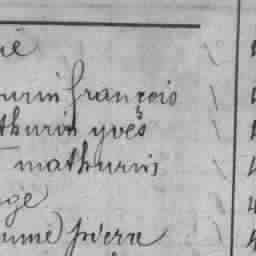 ie
urin françois
thurin yves
mathurin
ge
ume pierre